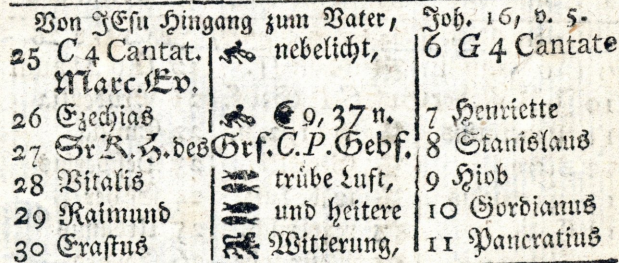 Von JEsu Hingang zum Vater, Joh. 16, v. 5.
25 C 4 Cantat. nebelicht, 6 G 4 Cantate
Marc. Ev.
26 Ezechias ☾ 9, 37 n. 7 Henriette
27 Sr K. H. des Grf. C. P. Gebf. 8 Stanislaus
28 Vitalis trübe Luft, 9 Hiob
29 Raimund und heitere 10 Gordianus
30 Erastus Witterung, 11 Pancratius